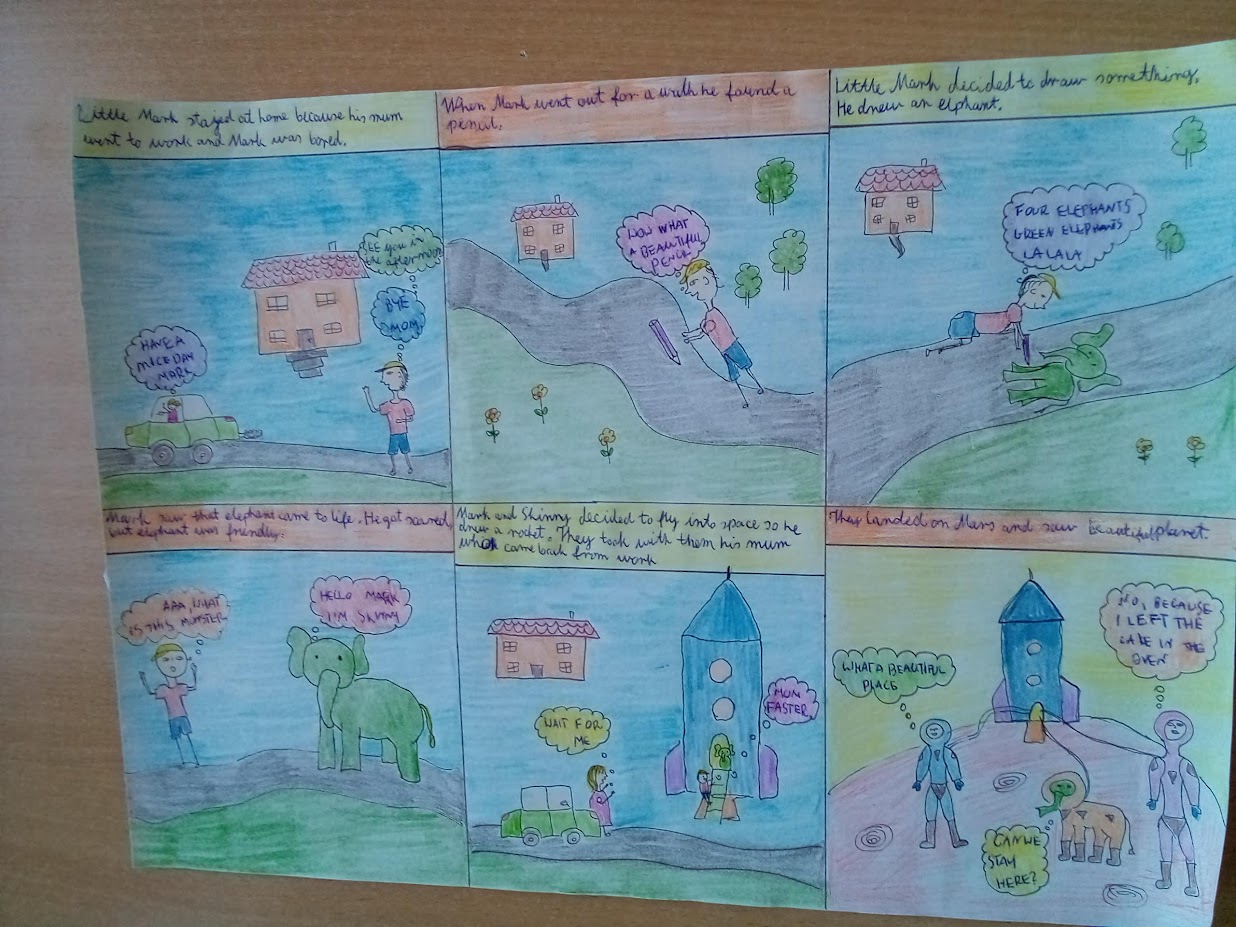 Little Mark stayed at home because his mum
went to work and Mark was bored.
SEE YOU in
the afternoon
BYE
MOM
HAVE A
NICE DAY
MARK
When Mark went out for a walk he found a
pencil.
WOW WHAT
A BEAUTIFUL
PENCIL
Little Mark decided to draw something.
He drew an elphant.
FOUR ELEPHANTS
GREEN ELEPHANTS
LALALA
Mark saw that elephant came to life. He got scared,
but elephant was friendly.
AAA, WHAT
IS THIS MONSTER
HELLO MARK
I'M SKINNY
Mark and Skinny decided to fly into space so he
drew a rocket. They took with them his mum
who came back from work
WAIT FOR
ME
MUM
FASTER
They landed on Mars and saw beautiful planet.
WHAT A BEAUTIFUL
PLACE
NO, BECAUSE
I LEFT THE
CAKE IN THE
OVEN
CAN WE
STAY
HERE?